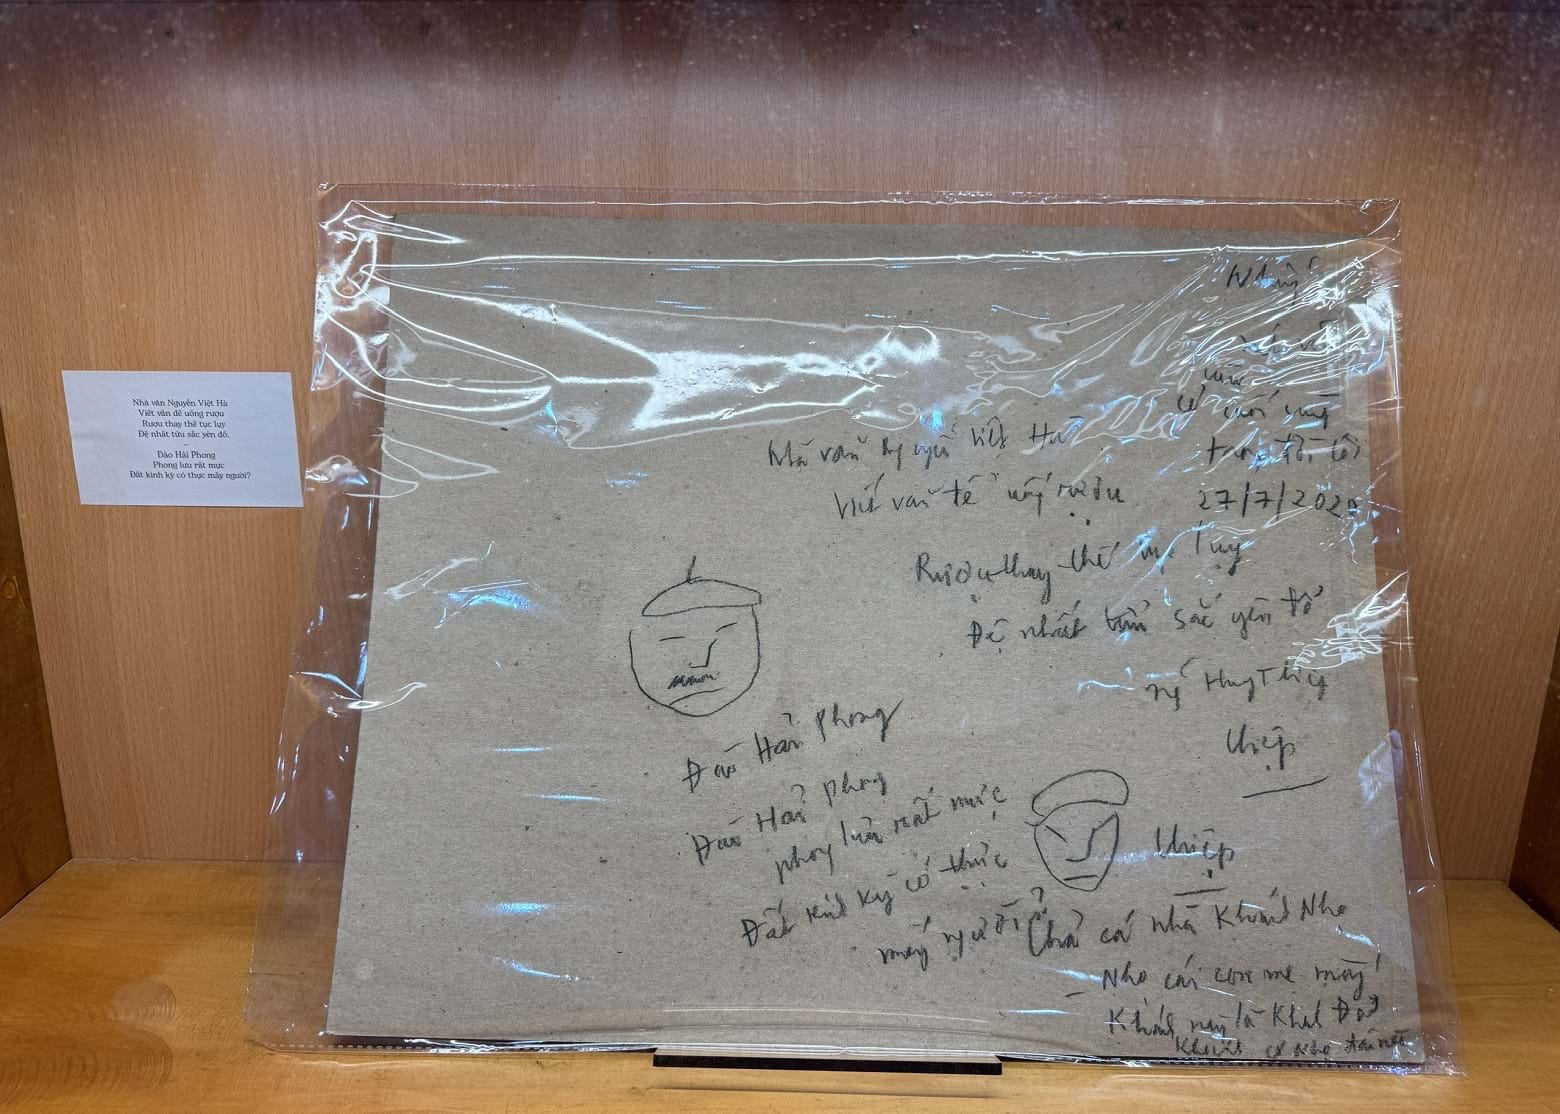 Nhà văn Nguyễn Việt Hà
Viết văn để uống rượu
Rượu thay thế tục lụy
Đệ nhất tửu sắc yên đổ.
–
Đào Hải Phong
Phong lưu rất mực
Đất kinh kỳ có thực mấy người?
cuối
27/7/2020
Nhà văn Nguyễn Việt Hà
Viết văn để uống rượu
Rượu thay thế tục lụy
Đệ nhất tửu sắc yên đổ
Ng Huy Thiệp
Thiệp
Đào Hải Phong
Đào Hải Phong
phong lưu rất mực
Đất kinh kỳ có thực
mấy người?
Thiệp
Chả cá nhà Khánh Nho
Nho cái con mẹ mày!
Khánh này là